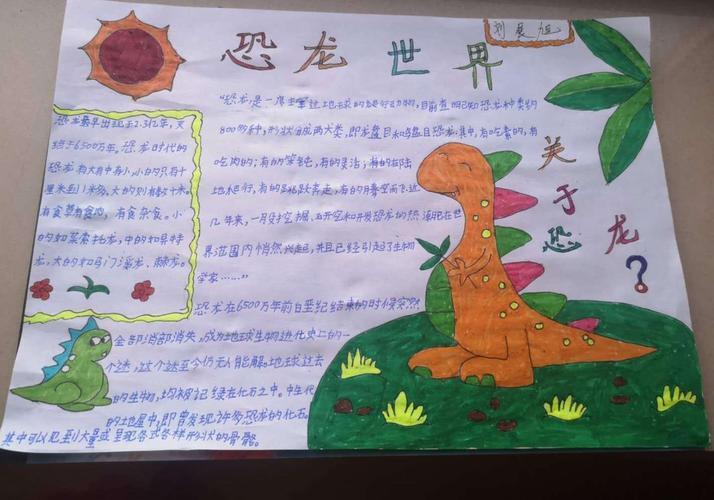 恐龙世界
刘晨旭
恐龙最早出现于2.3亿年,灭
绝于6500万年。恐龙时代的
恐龙有大有中有小,小的只有十
厘米至1米多,大的则有数十米。
有食草有食肉,有食杂食。小
的如莱索托龙,中的如异特
龙,大的如马门溪龙、棘龙。
"恐龙,是一度主宰过地球的爬行动物,目前查明的恐龙种类约
800多种,形状分成两大类,即龙盘目和鸟盘目恐龙,其中,有吃素的,有
吃肉的;有的笨钝,有的灵活;有的在陆
地爬行,有的跳跃奔走,有的腾空而飞近
几年来,一股挖掘、研究和开发恐龙的热潮已在世
界范围内悄然兴起,并且已经引起了生物
学家……"
恐龙在6500万年前白垩纪结束的时候突然
全部消失,成为地球生物进化史上的一
个谜,这个谜至今仍无人能解。地球过去
的生物,均被记绿在化石之中。中生代
的地层中,即曾发现许多恐龙的化石。
其中可以见到大量或呈现各式各样形状的骨骼。
关于恐龙?